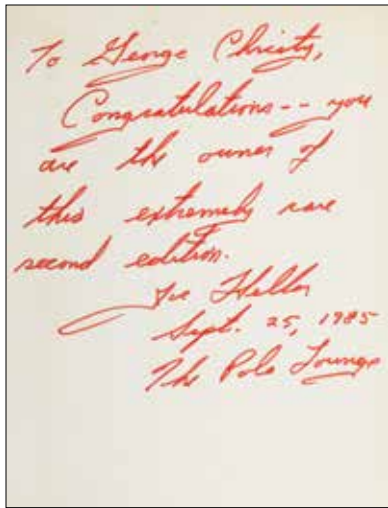 To George Christy,
Congratulations -- you
are the owner of
this extremely rare
second edition.
Joe Heller
Sept. 25, 1985
The Polo Lounge